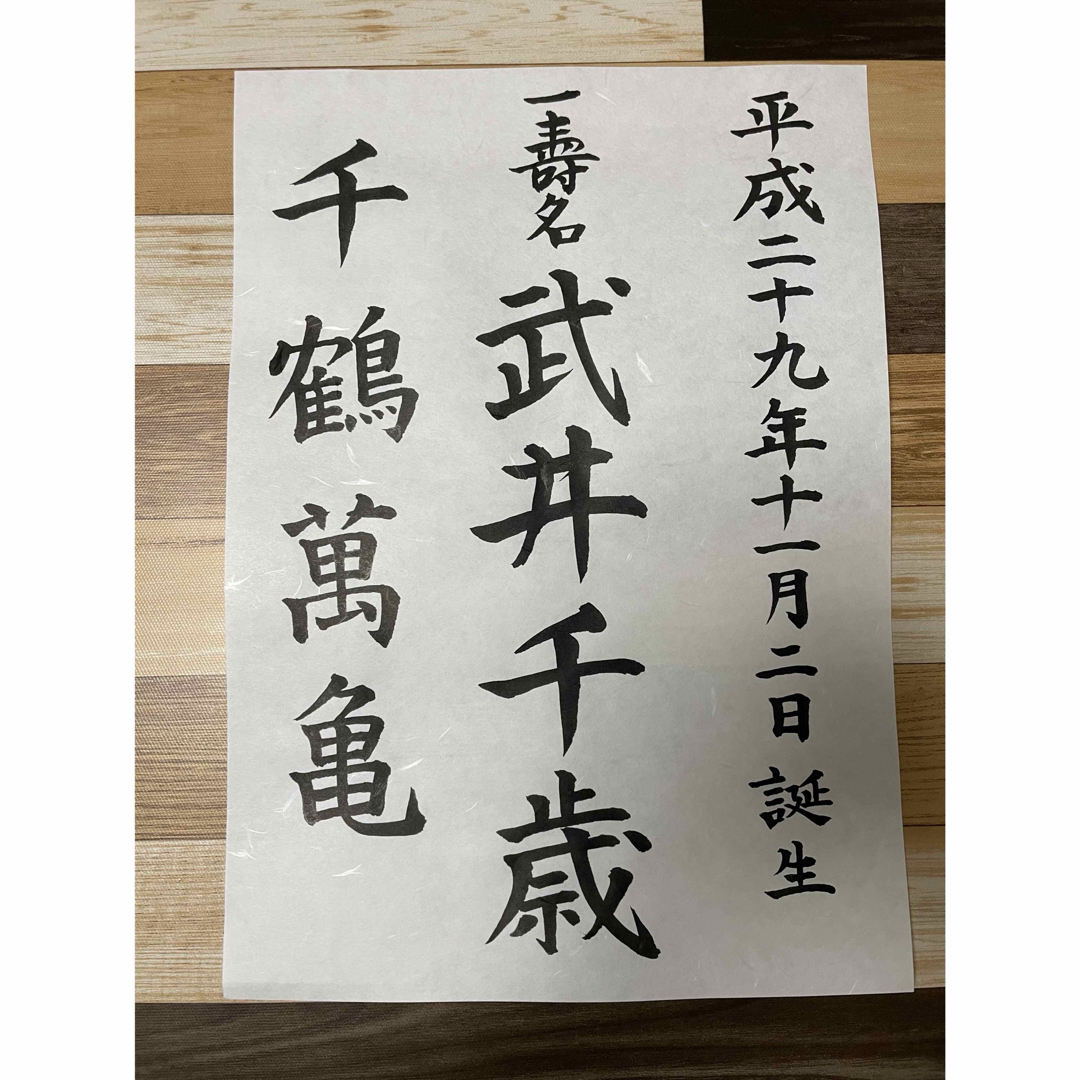 平成二十九年十一月二日 誕生
一壽名 武井千歳
千鶴萬亀